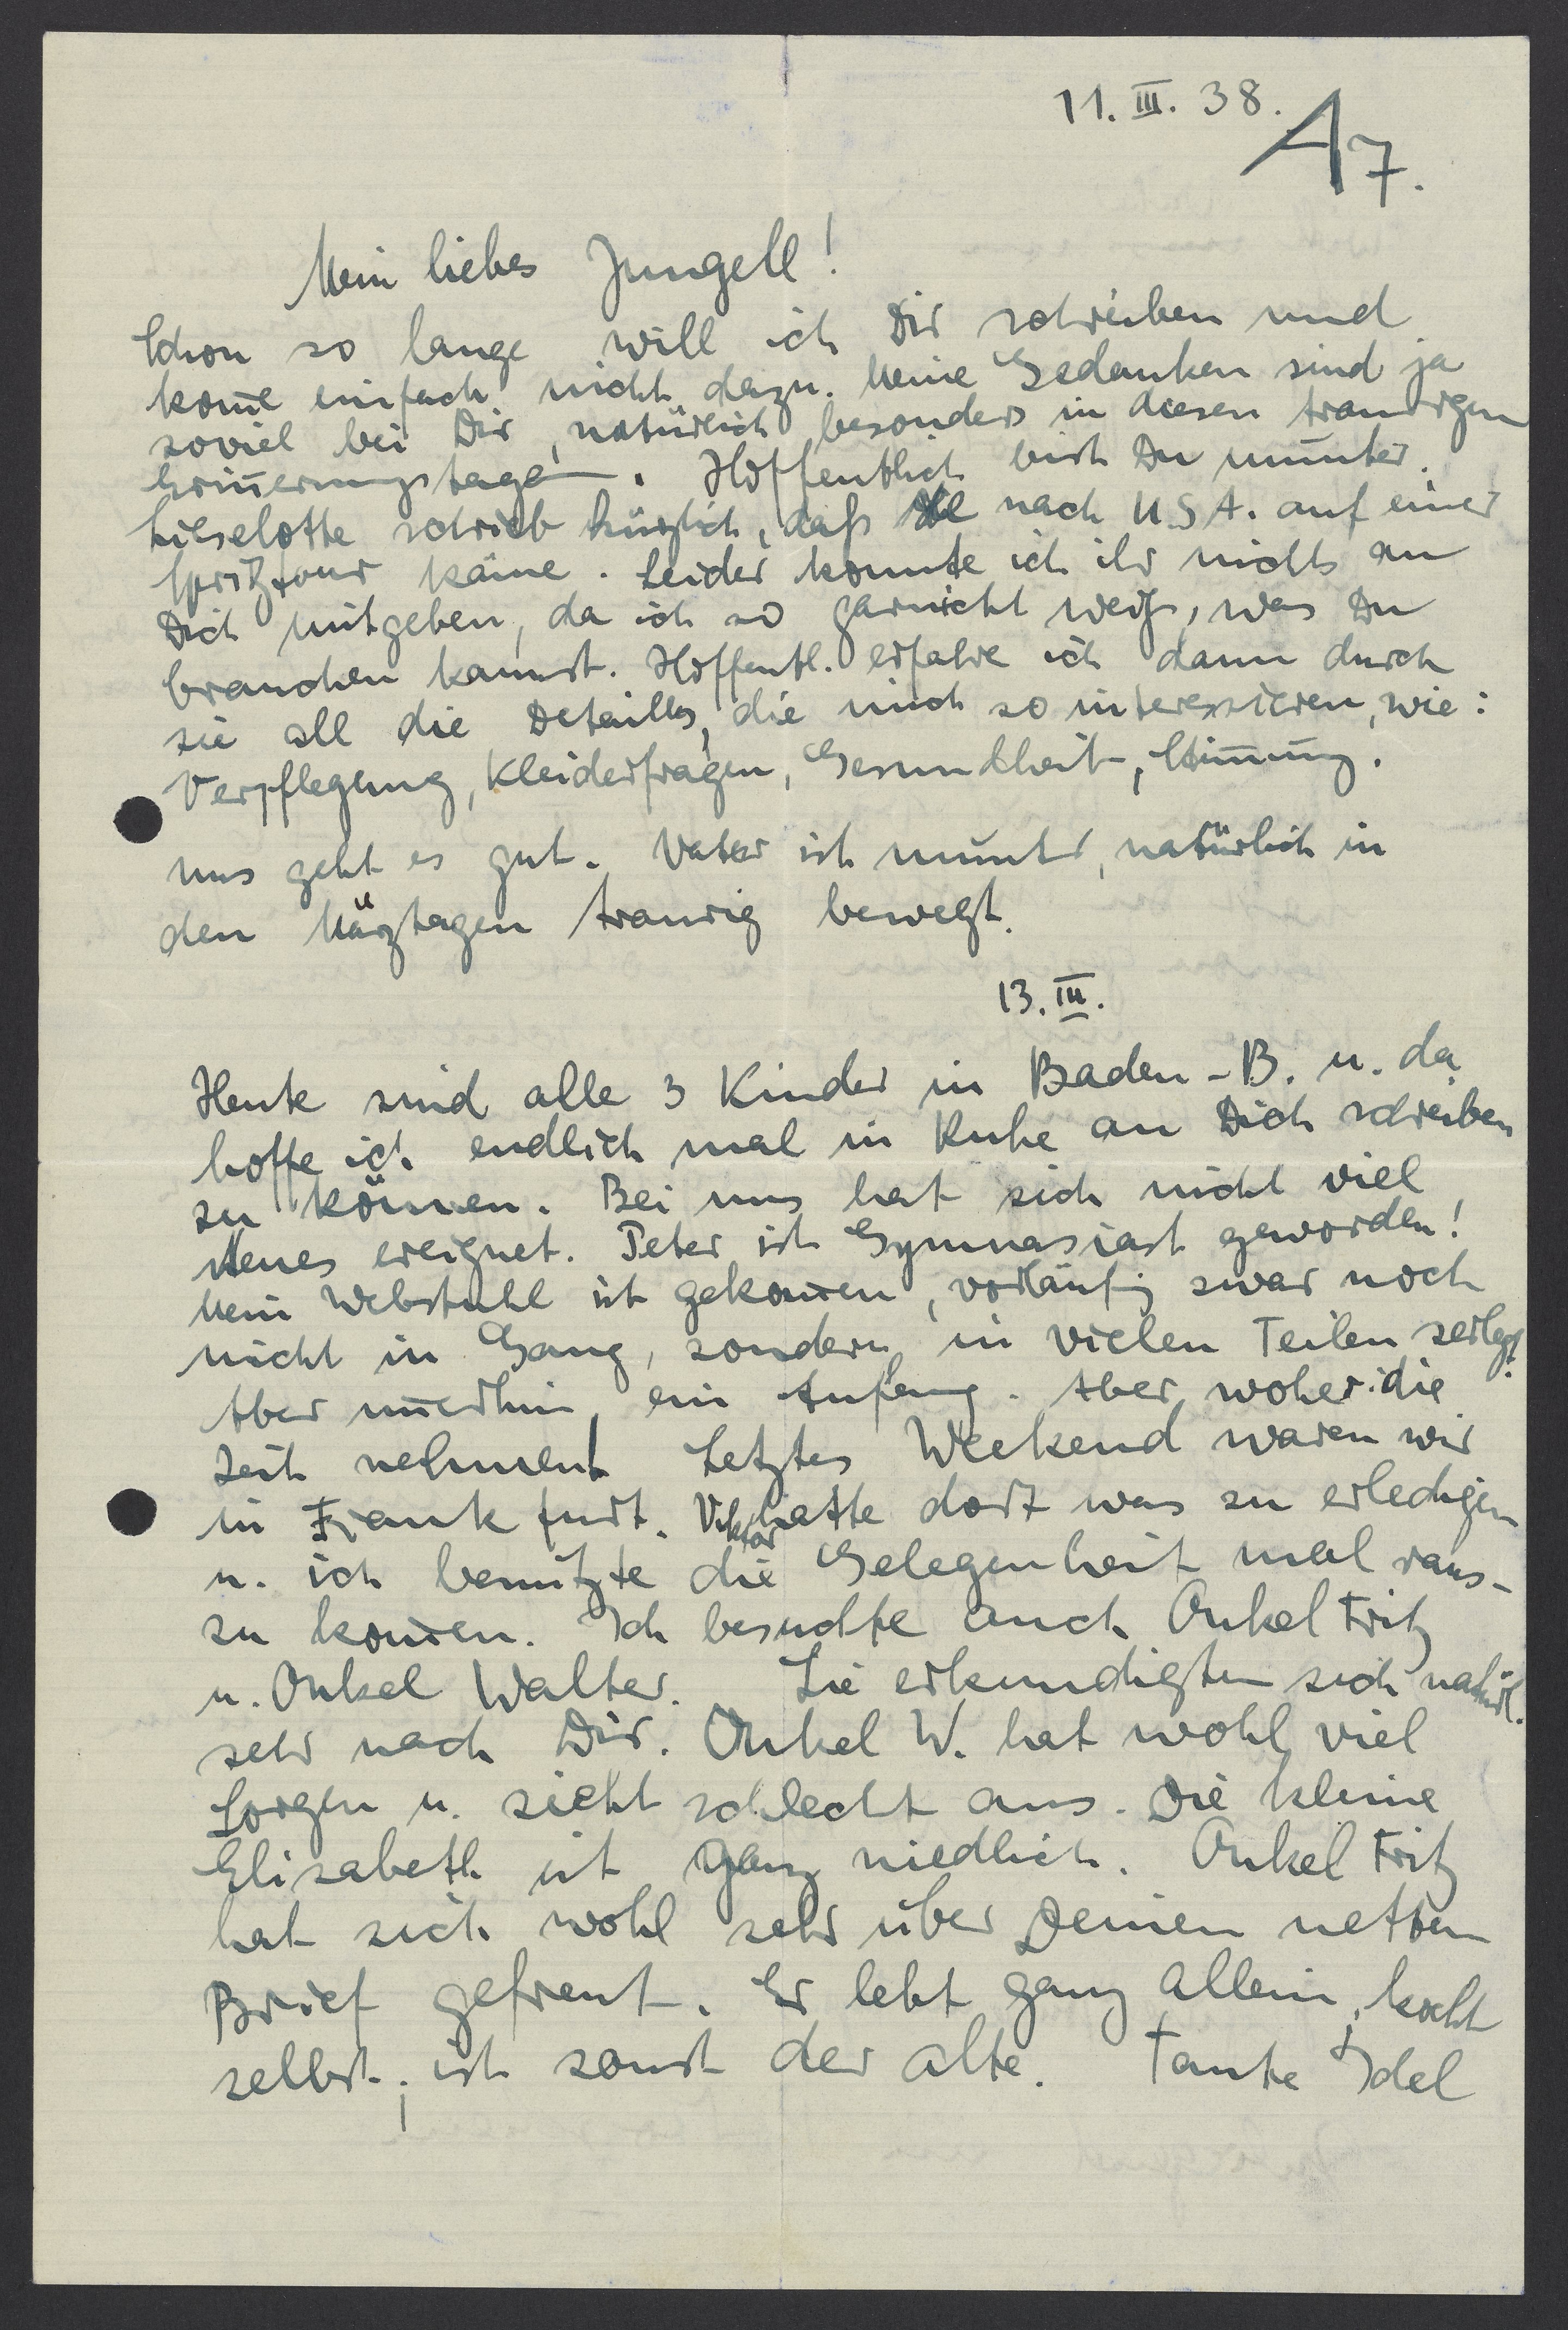 11. III. 38.
A 7.
Mein liebes Jungell!
Schon so lange will ich Dir schreiben und
kom̅e einfach nicht dazu. Meine Gedanken sind ja
soviel bei Dir, natürlich besonders in diesen traurigen
Erin̅erungstagen. Hoffentlich bist Du munter.
Lieselotte schrieb kürzlich, daß sie nach U.S.A. auf einer
Spritztour käme. Leider konnte ich ihr nichts an
Dich mitgeben, da ich so garnicht weiß, was Du
brauchen kannst. Hoffentl. erfahre ich dann durch
sie all die Details, die mich so interessieren, wie:
Verpflegung, Kleiderfragen, Gesundheit, Stim̅ung.
Uns geht es gut. Vater ist munter, natürlich in
den Märztagen traurig bewegt.
13. III.
Heute sind alle 3 Kinder in Baden-B. u. da
hoffe ich endlich mal in Ruhe an Dich schreiben
zu können. Bei uns hat sich nicht viel
Neues ereignet. Peter ist Gymnasiast geworden!
Mein Webstuhl ist gekom̅en, vorläufig zwar noch
nicht in Gang, sondern in vielen Teilen zerlegt.
Aber im̅erhin ein Anfang. Aber woher die
Zeit nehmen! Letztes Weekend waren wir
in Frankfurt. Viktor hatte dort was zu erledigen
u. ich benutzte die Gelegenheit mal raus-
zu kom̅en. Ich besuchte auch Onkel Fritz
u. Onkel Walter. Sie erkundigten sich natürl.
sehr nach Dir. Onkel W. hat wohl viel
Sorgen u. sieht schlecht aus. Die kleine
Elisabeth ist ganz niedlich. Onkel Fritz
hat sich wohl sehr über Deinen netten
Brief gefreut. Er lebt ganz allein, kocht
selbst, ist sonst der alte. Tante Idel